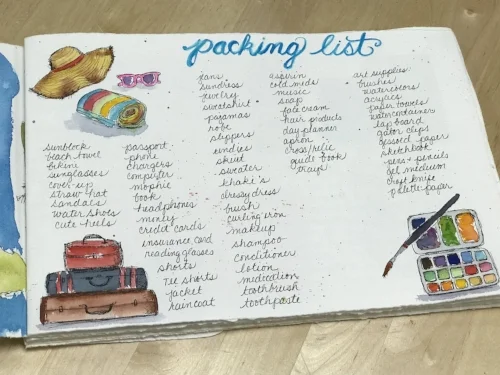 packing list
sunblock
beach towel
bikini
sunglasses
cover-up
straw hat
sandals
water shoes
cute heels
passport
phone
chargers
computer
mophie
book
headphones
money
credit cards
insurance card
reading glasses
shorts
tee shorts
jacket
raincoat
jeans
sundress
jewelry
sweatshirt
pajamas
robe
slippers
undies
skirt
sweater
khaki's
dressy dress
brush
curling iron
makeup
shampoo
conditioner
lotion
medication
toothbrush
toothpaste
aspirin
cold meds
music
soap
face cream
hair products
day planner
apron
cross/relic
guide book
art supplies
brushes
watercolors
acrylics
paper towels
water container
lap board
gator clips
gessoed paper
sketchbook
pens + pencils
gel medium
craft knife
palette paper